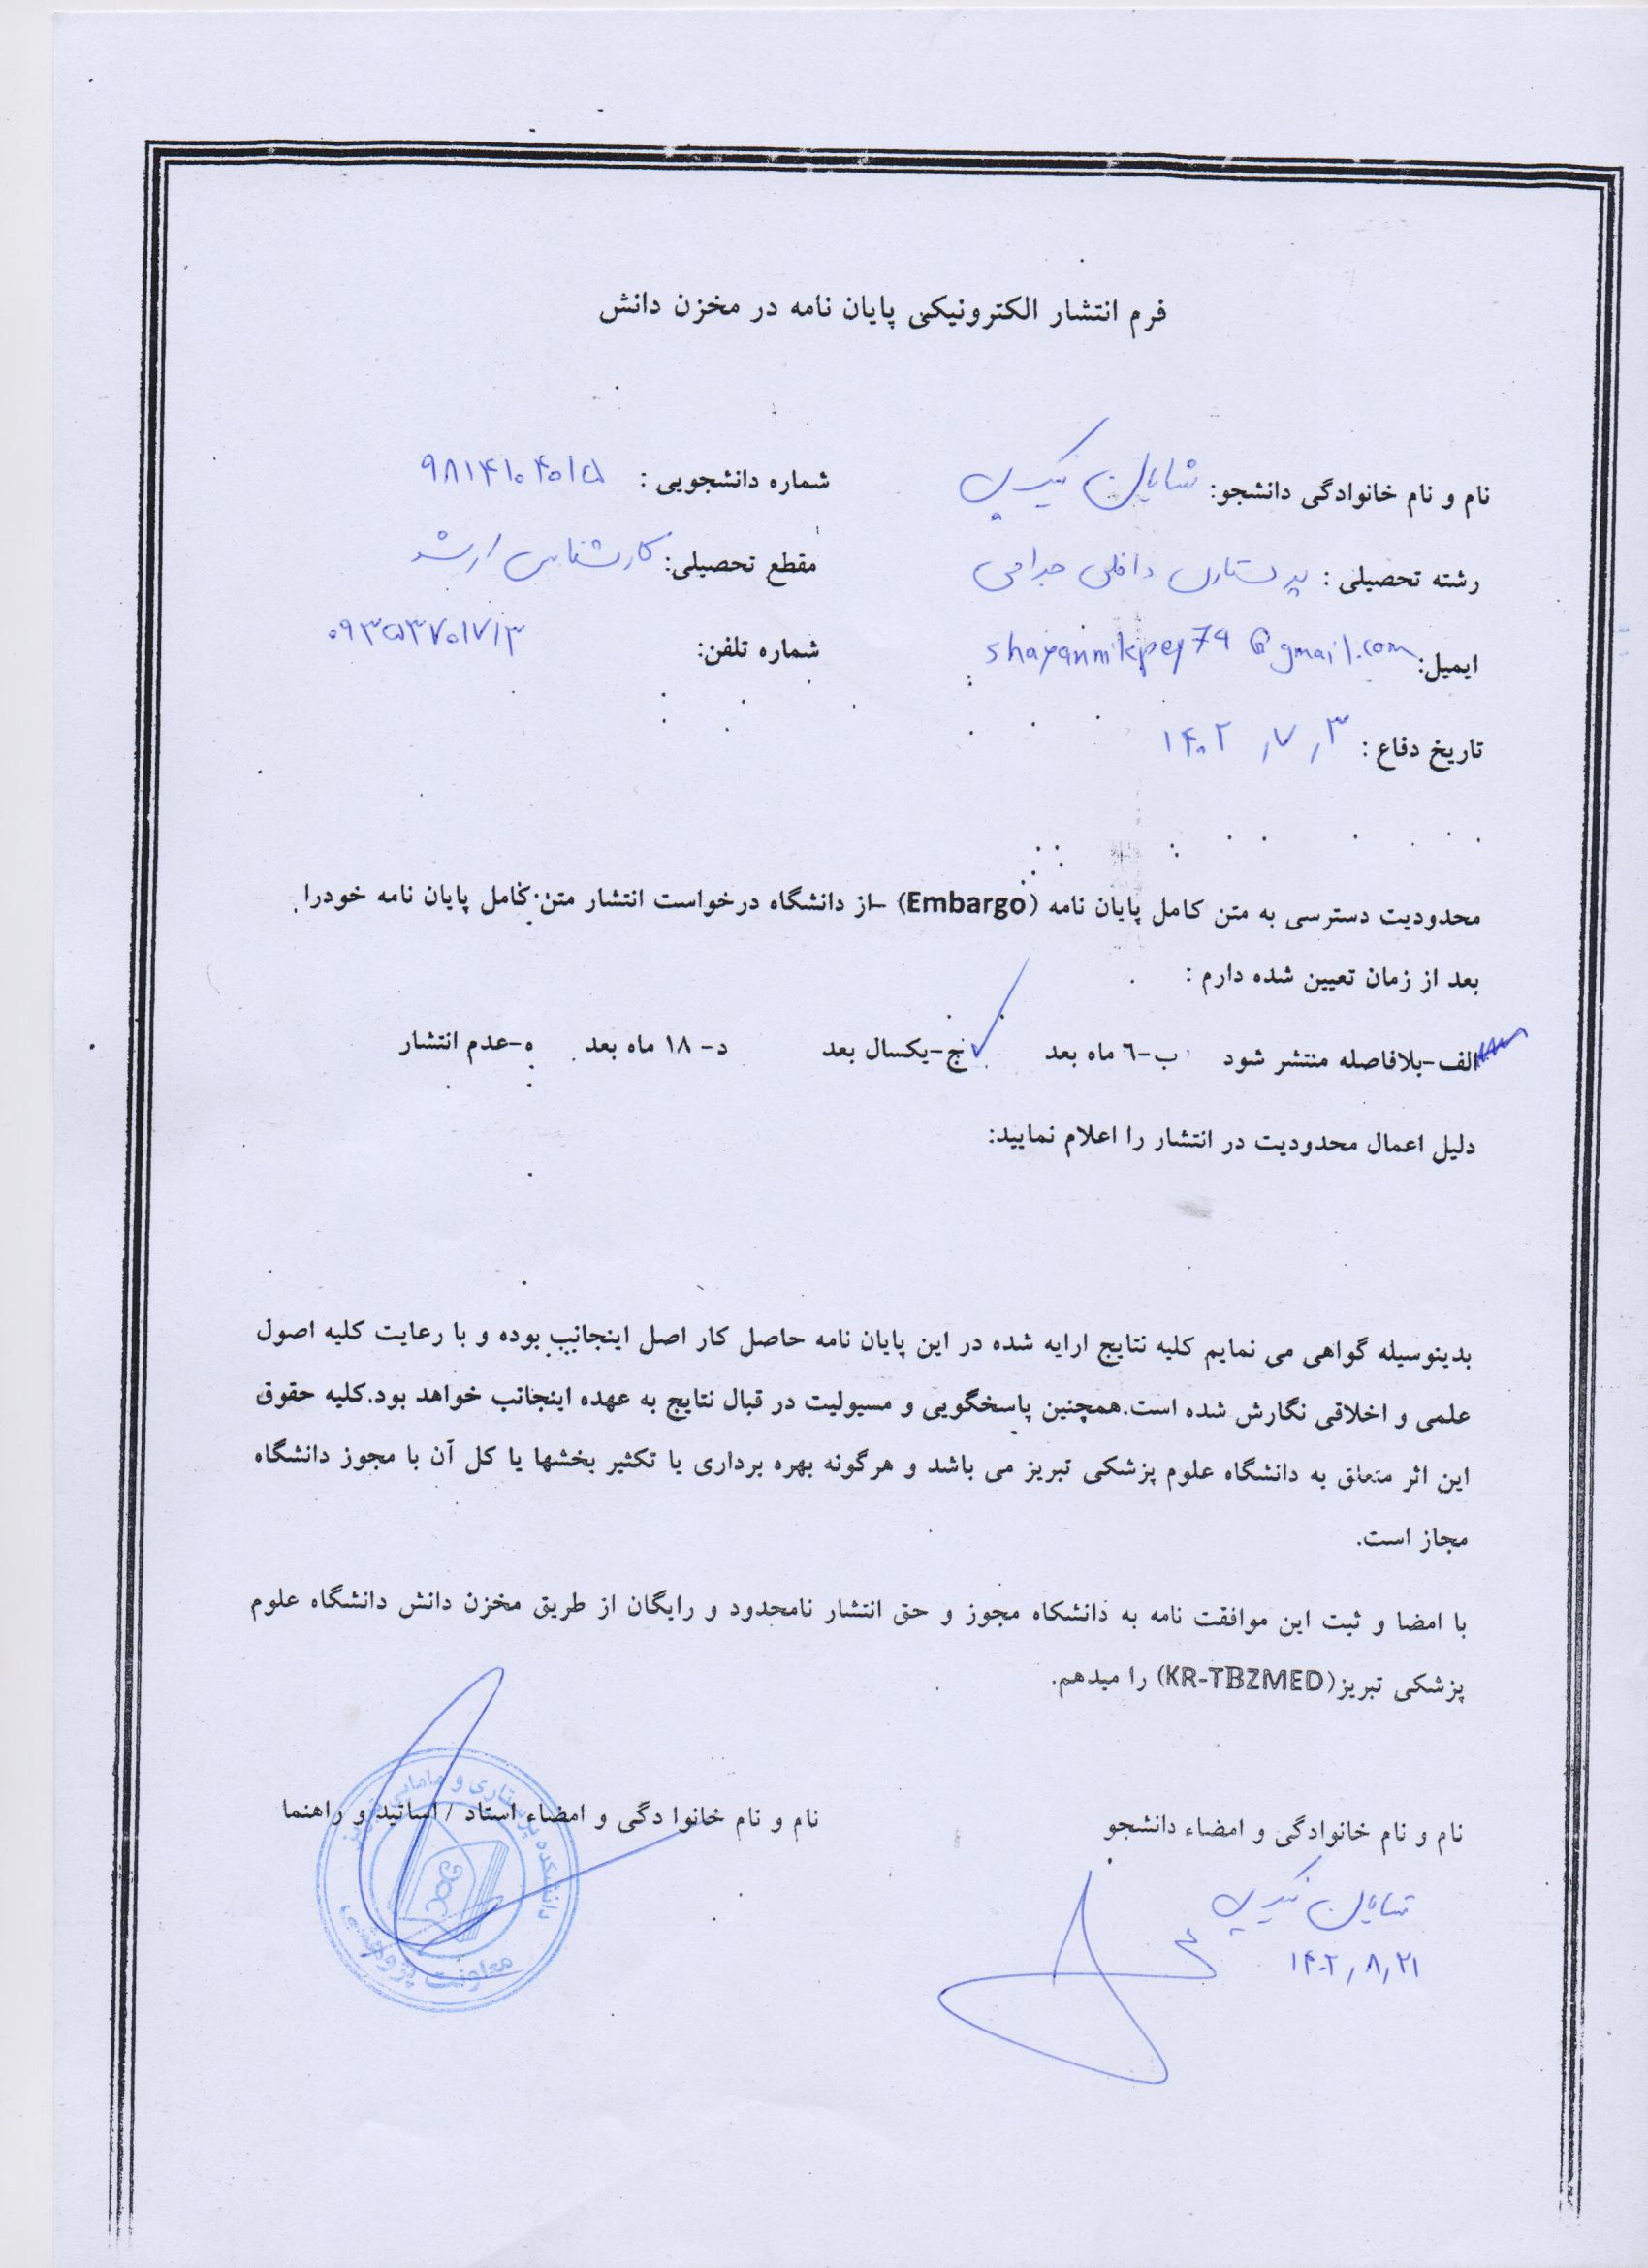 فرم انتشار الکترونیکی پایان نامه در مخزن دانش
نام و نام خانوادگی دانشجو: شایان نیک پی شماره دانشجویی : ۹۸۱۴۱۰۴۰۱۵
رشته تحصیلی : پرستاری داخلی جراحی مقطع تحصیلی: کارشناسی ارشد
ایمیل: shayannikpey79@gmail.com شماره تلفن: ۰۹۳۵۳۷۰۱۷۱۳
تاریخ دفاع : ۱۴۰۲,۷,۳
محدودیت دسترسی به متن کامل پایان نامه (Embargo) –از دانشگاه درخواست انتشار متن کامل پایان نامه خودرا
بعد از زمان تعیین شده دارم :
الف-بلافاصله منتشر شود ب-٦ ماه بعد ج-یکسال بعد د- ۱۸ ماه بعد ه-عدم انتشار
دلیل اعمال محدودیت در انتشار را اعلام نمایید:
بدینوسیله گواهی می نمایم کلیه نتایج ارایه شده در این پایان نامه حاصل کار اصل اینجانب بوده و با رعایت کلیه اصول
علمی و اخلاقی نگارش شده است.همچنین پاسخگویی و مسیولیت در قبال نتایج به عهده اینجانب خواهد بود.کلیه حقوق
این اثر متعلق به دانشگاه علوم پزشکی تبریز می باشد و هرگونه بهره برداری یا تکثیر بخشها یا کل آن با مجوز دانشگاه
مجاز است.
با امضا و ثبت این موافقت نامه به دانشکاه مجوز و حق انتشار نامحدود و رایگان از طریق مخزن دانش دانشگاه علوم
پزشکی تبریز(KR-TBZMED) را میدهم.
نام و نام خانوادگی و امضاء دانشجو نام و نام خانوا دگی و امضاء استاد / اساتید و راهنما
شایان نیک پی
۱۴۰۲,۸,۲۱
دانشکده پرستاری و مامایی تبریز
معاونت پژوهشی